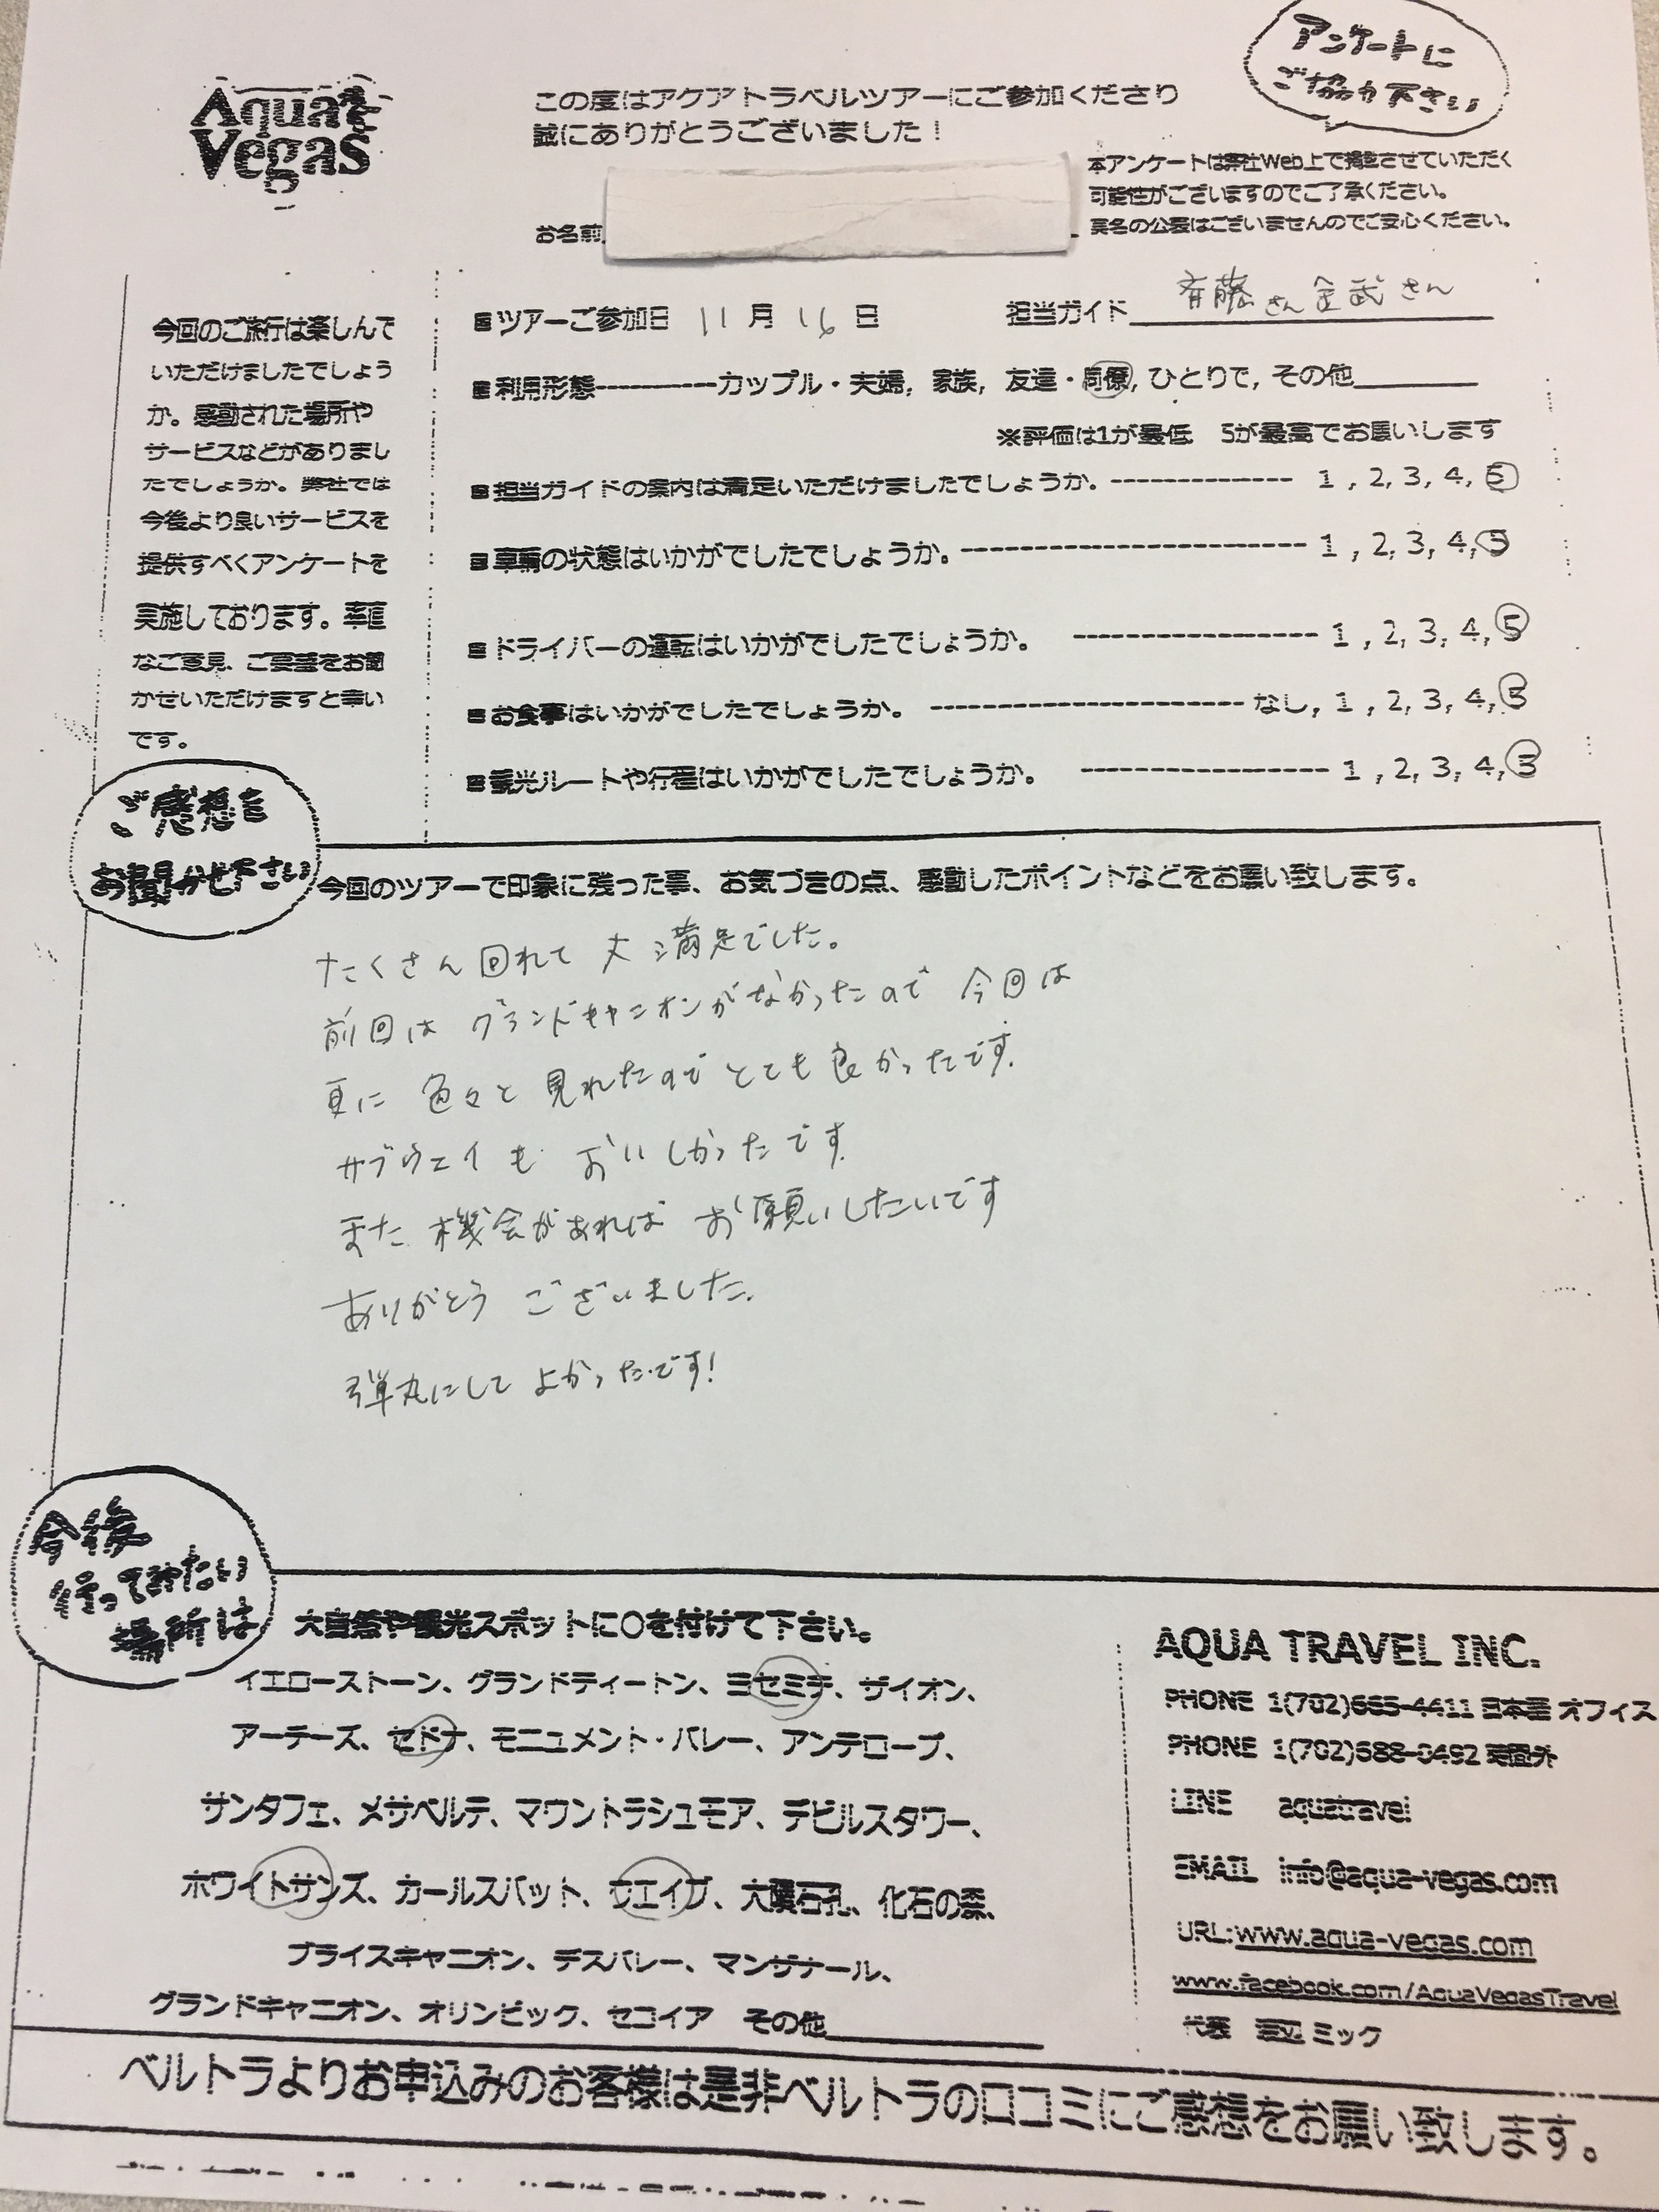 Aqua
Vegas
この度はアクアトラベルツアーにご参加くださり
誠にありがとうございました！
アンケートに
ご協力下さい
本アンケートは弊社Web上で掲載させていただく
可能性がございますのでご了承ください。
実名の公表はございませんのでご安心ください。
お名前
今回のご旅行は楽しんで
いただけましたでしょう
か。感動された場所や
サービスなどがありまし
たでしょうか。弊社では
今後より良いサービスを
提供すべくアンケートを
実施しております。率直
なご意見、ご要望をお聞
かせいただけますと幸い
です。
■ツアーご参加日 11月16日 担当ガイド 斉藤さん 金武さん
■利用形態----------カップル・夫婦, 家族, 友達・同僚, ひとりで, その他
※評価は1が最低 5が最高でお願いします
■担当ガイドの案内は満足いただけましたでしょうか。------------- 1, 2, 3, 4, 5
■車輌の状態はいかがでしたでしょうか。------------------------- 1, 2, 3, 4, 5
■ドライバーの運転はいかがでしたでしょうか。 ------------------ 1, 2, 3, 4, 5
■お食事はいかがでしたでしょうか。 ----------------------- なし, 1, 2, 3, 4, 5
■観光ルートや行程はいかがでしたでしょうか。 ------------------ 1, 2, 3, 4, 5
ご感想を
お聞かせ下さい
今回のツアーで印象に残った事、お気づきの点、感動したポイントなどをお願い致します。
たくさん回れて 大満足でした。
前回は グランドキャニオンがなかったので 今回は
更に 色々と 見れたので とても良かったです.
サブウェイも おいしかったです.
また 機会があれば お願いしたいです
ありがとう ございました.
弾丸にして よかったです!
今後
行ってみたい
場所は
大自然や観光スポットに○を付けて下さい。
イエローストーン、グランドティートン、ヨセミテ、ザイオン、
アーチーズ、セドナ、モニュメント・バレー、アンテロープ、
サンタフェ、メサベルデ、マウントラシュモア、デビルスタワー、
ホワイトサンズ、カールスバット、ウエイブ、大隕石孔、化石の森、
ブライスキャニオン、デスバレー、マンザナール、
グランドキャニオン、オリンピック、セコイア その他
AQUA TRAVEL INC.
PHONE 1(702)665-4411 日本語 オフィス
PHONE 1(702)688-0492
LINE aquatravel
EMAIL info@aqua-vegas.com
URL:www.aqua-vegas.com
www.facebook.com/AquaVegasTravel
代表 渡辺 ミック
ベルトラよりお申込みのお客様は是非ベルトラの口コミにご感想をお願い致します。